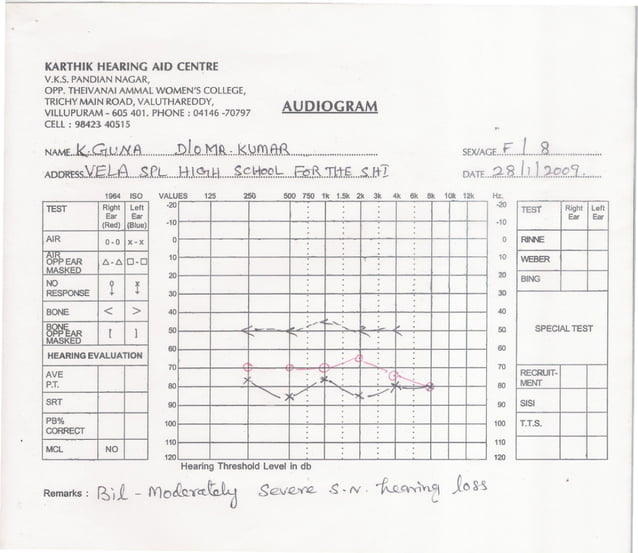 KARTHIK HEARING AID CENTRE
V.K.S. PANDIAN NAGAR,
OPP. THEIVANAI AMMAL WOMEN'S COLLEGE,
TRICHY MAIN ROAD, VALUTHAREDDY,
VILLUPURAM - 605 401. PHONE : 04146 -70797
CELL : 98423 40515
AUDIOGRAM
NAME K. GUNA D/o MR. KUMAR SEX/AGE F / 8
ADDRESS VELA SPL HIGH SCHOOL FOR THE S.H.I DATE 28/1/2009.
1964 ISO VALUES 125 250 500 750 1k 1.5k 2k 3k 4k 6k 8k 10k 12k Hz.
TEST Right Ear (Red) Left Ear (Blue)
AIR O-O X-X
AIR OPP EAR MASKED Δ-Δ □-□
NO RESPONSE
BONE < >
BONE OPP EAR MASKED [ ]
HEARING EVALUATION
AVE P.T.
SRT
PB% CORRECT
MCL NO
-20 -20
-10 -10
0 0
10 10
20 20
30 30
40 40
50 50
60 60
70 70
80 80
90 90
100 100
110 110
120 120
Hearing Threshold Level in db
TEST Right Ear Left Ear
RINNE
WEBER
BING
SPECIAL TEST
RECRUIT-
MENT
SISI
T.T.S.
Remarks : Bil - Moderately Severe S.N. hearing loss